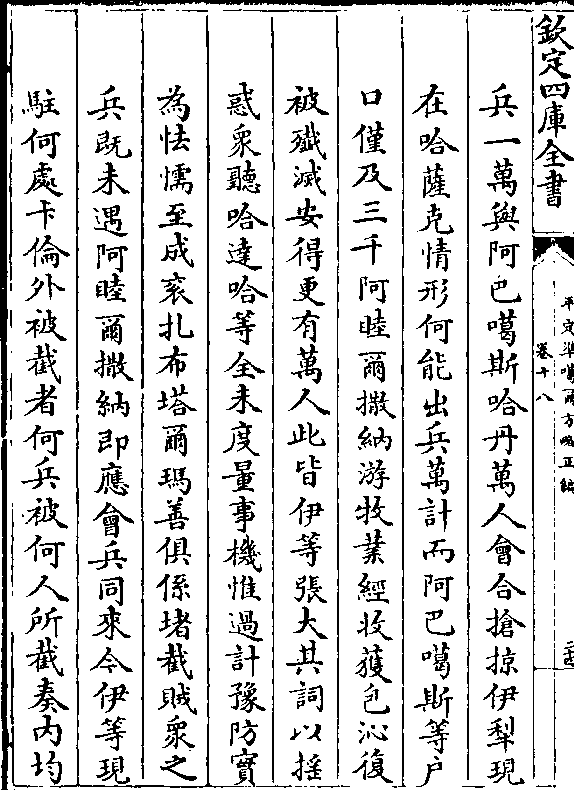 欽定四庫全書
平定準噶爾方略正編
卷十八
二十四
兵一萬與阿巴噶斯哈丹萬人會合搶掠伊犁現
在哈薩克情形何能出兵萬計而阿巴噶斯等户
口僅及三千阿睦爾撒納游牧業經收獲包沁復
被殲滅安得更有萬人此皆伊等張大其詞以搖
惑衆聽哈達哈等全未度量事機惟過計豫防實
為怯懦至成衮扎布塔爾瑪善俱係堵截賊衆之
兵既未遇阿睦爾撒納即應會兵同來今伊等現
駐何處卡倫外被截者何兵被何人所截奏内均